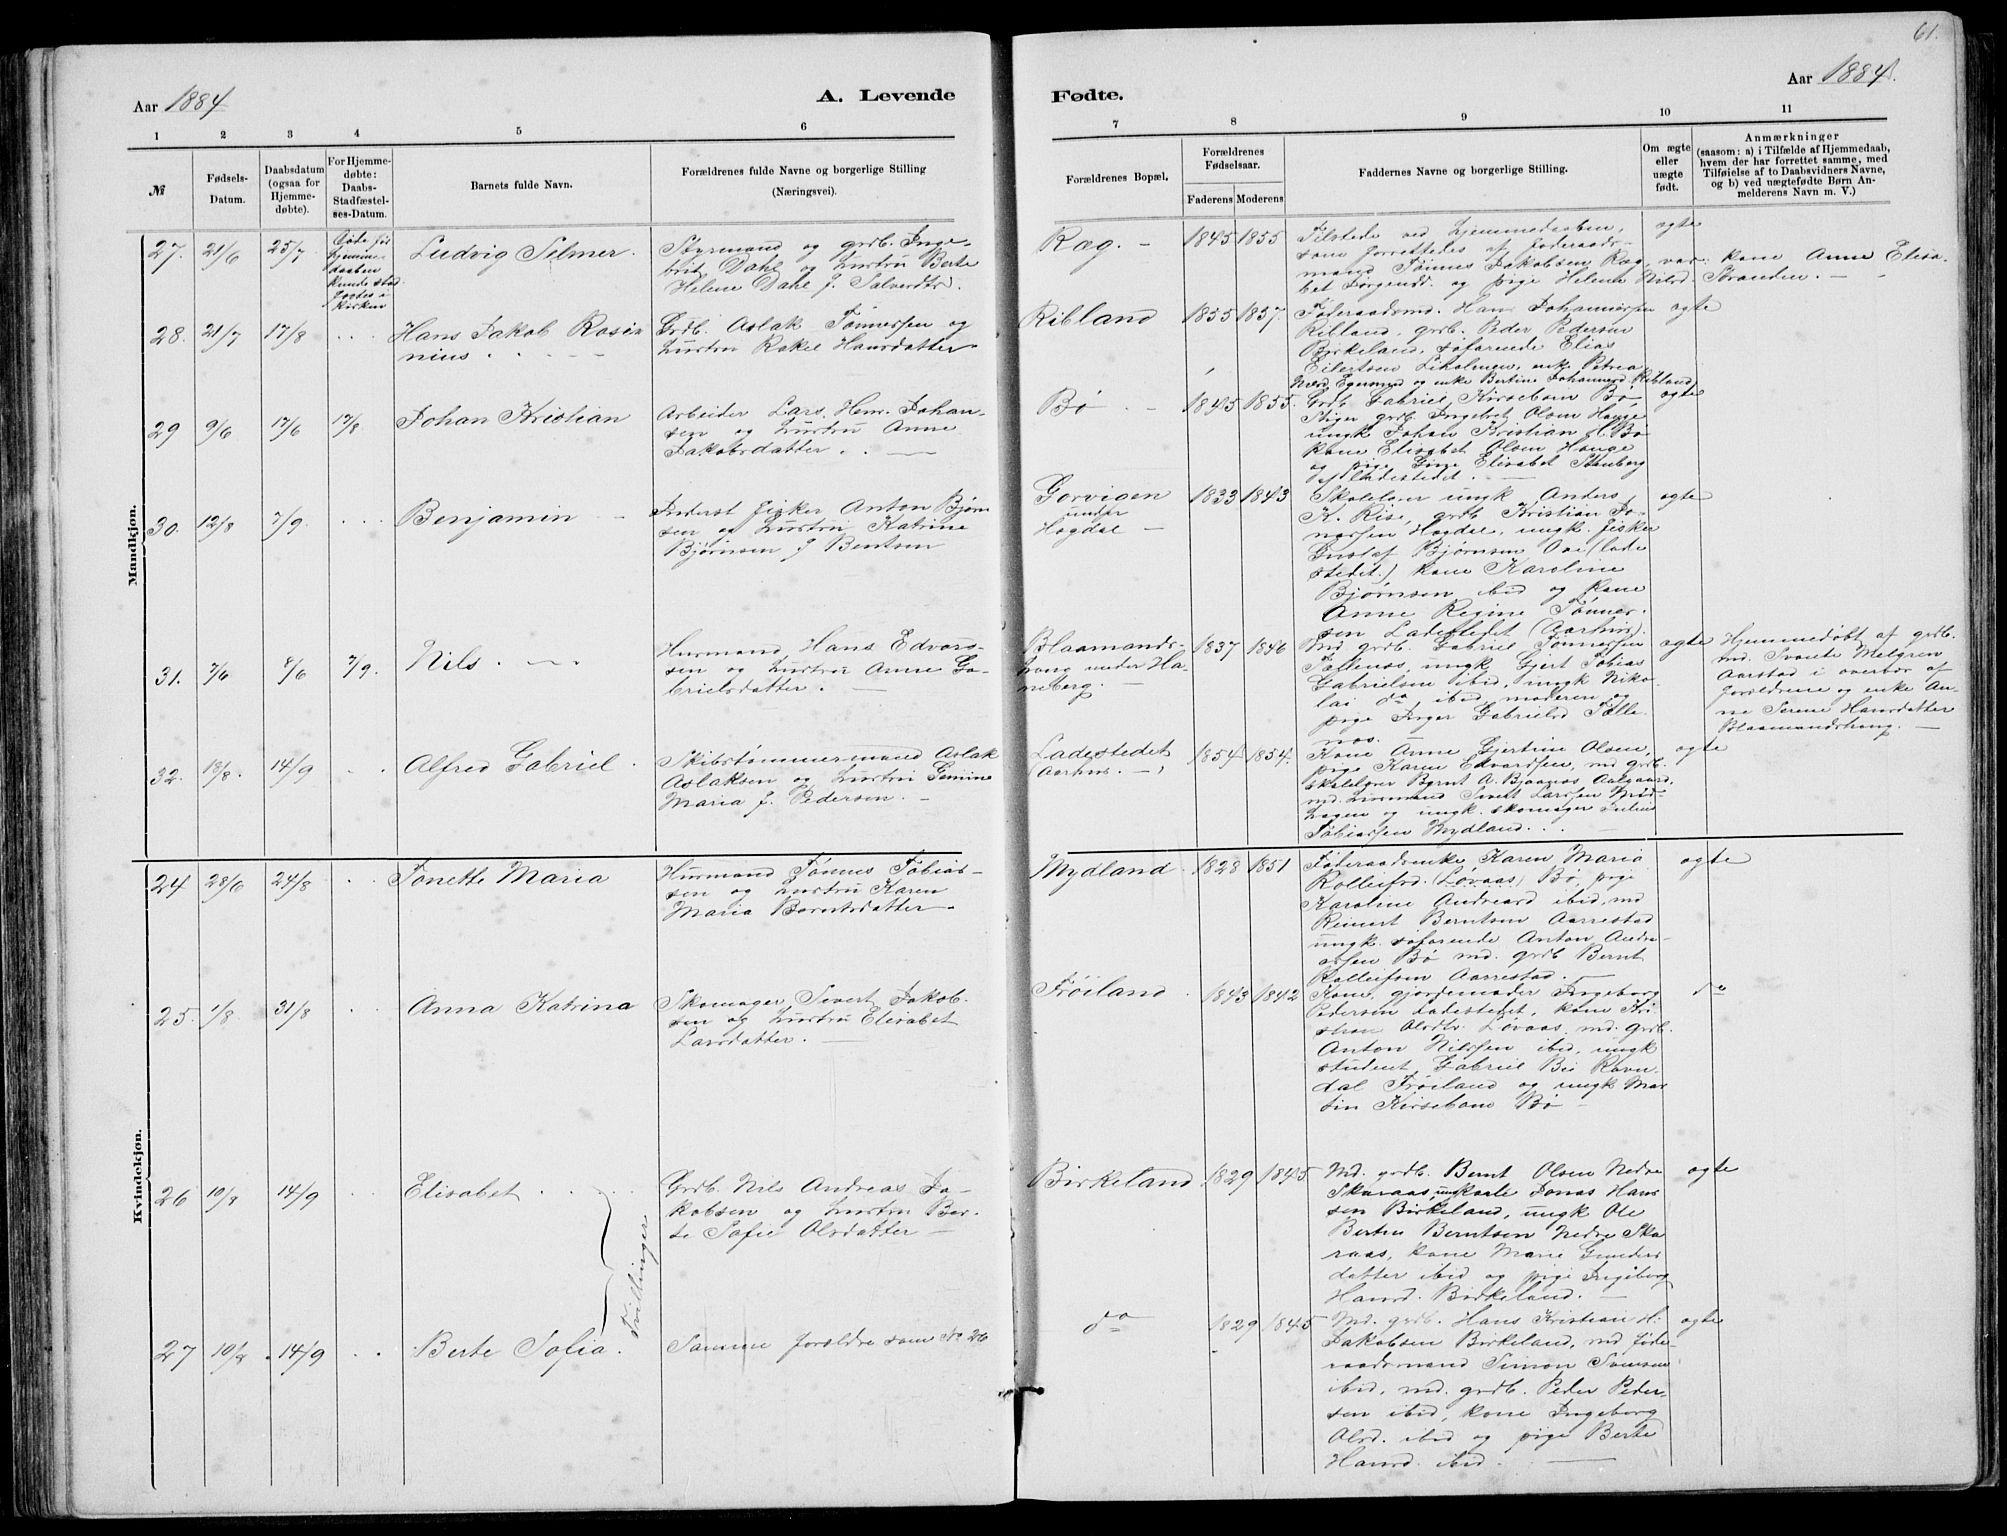 61.
Aar 1884
A. Levende
Fødte.
Aar 1884.
1 2 3 4 5 6
7 8 9 10 11
№
Fødsels-
Datum.
Daabsdatum
(ogsaa for
Hjemme-
døbte).
For Hjemme-
døbte:
Daabs-
Stadfæstel-
ses-Datum.
Barnets fulde Navn.
Forældrenes fulde Navne og borgerlige Stilling
(Næringsvei).
Forældrenes Bopæl.
Forældrenes
Fødselsaar.
Faderens Moderens
Faddernes Navne og borgerlige Stilling.
Om ægte
eller
uægte
født.
Anmærkninger
(saasom: a) i Tilfælde af Hjemmedaab,
hvem der har forrettet samme, med
Tilføielse af to Daabsvidners Navne,
og b) ved uægtefødte Børn An-
melderens Navn m. V.)
Mandkjøn.
27. 21/6 25/7
Døde før
hjemme-
daaben
kunde stad
fæstes i
kirken
Ludvig Selmer.
Styrmand og grdb. Inge-
brit Dahl og hustru Berte
Helene Dahl f. Salverdtr.
Ræg. —
1845 1855
Tilstede ved hjemmedaaben,
som forrettedes af føderaads-
mand Tønnes Jakobsen Ræg, var: kone Anne Elisa-
bet Jørgensd. og pige Helene Nilsd. Stranden. —
ægte
28. 21/7 17/8
Hans Jakob Rosin
nius
Grdb. Aslak Tønnessen og
hustru Rakel Hansdatter
Ribland
1855 1857.
Føderaadsmd. Hans Johannessen
Ribland, grdb. Peder Pedersen
Birkeland, søfarende Elias
Eilertsen Liholmen, enke Petrea
Nærd. Egersund og enke Bertine Johannesd. Ribland
ægte
29 9/6 17/6 17/8
Johan Kristian
Arbeider Lars Henr. Johan-
sen og hustru Anne
Jakobsdatter.
Bø
1845 1855.
Grdb. Gabriel Kirsebom Bø
Stiger grdb. Ingebret Olsen Hauge
ungk Johan Kristian H. Bø
kone Elisabet Olsen Hauge
og pige Gine Elisabet Stenberg
Ladestedet. —
ægte
30. 12/8 7/9.
Benjamin
Inderst fisker Anton Bjørn
sen og hustru Katrine
Bjørnsen f Bentsen
Gorvigen
under
Hogdal —
1833 1843
Skolelærer ungk Anders
K. Rise, grdb Kristian Jo-
nassen Hogdal, ungk. fisker
Gustaf Bjørnsen Ove (lade
stedet.) kone Karoline
Bjørnsen ibid og kone
Anne Regine Tønnes-
sen Ladestedet (Aarhus).
ægte
31. 7/6 8/6 7/9.
Nils.
Husmand Hans Edvars-
sen og hustru Anne Ga-
brielsdatter.
Blaamands-
hong under Ha-
neberg.
1837 1846
Md grdb. Gabriel Tønnesen
Fællenæs, ungk Gjert Tobias
Gabrielsen ibid, ungk Niko-
lai do ibid, moderen og
pige Inger Gabrielsd Fælle
næs.
ægte
Hjemmedøbt af grdb.
md. Svante Melgren
Aarstad i overvær af
forældrene og enke An-
ne Serene Hansdatter
Blaamandshong.
32. 18/8. 14/9
Alfred Gabriel
Skibstømmermand Aslak
Aslaksen og hustru Semine
Maria f. Pedersen.
Ladestedet
(Aarhus.
1854 1854.
Kone Anne Gjertine Olsen,
pige Karen Edvardsen, md grdb.
skolelærer Bernt A. Bjaanes Aalgaard,
md. husmand Sivert Larssen Brød-
hagen og ungk. skomager Julius
Tobiassen Mydland.
ægte
Kvindekjøn.
24 28/6 24/8
Tonette Maria
Husmand Tønnes Tobias-
sen og hustru Karen
Maria Berntsdatter
Mydland
1828 1851
Føderaadsenke Karen Maria
Rolleifsd. (Løvaas) Bø, pige
Karoline Andreasd ibid, md
Reinert Berntsen Aarrestad
ungk. søfarende Anton Andre-
assen Bø md. grdb Bernt
Rolleifsen Aarrestad. —
ægte
25. 1/8. 31/8
Anna Katrina
Skomager Sivert Jakob-
sen og hustru Elisabet
Larsdatter. —
Frøiland
1843 1842
Kone, gjordemoder Ingeborg
Pedersen Ladestedet, kone Kri-
stian Olsdtr. Løvaas, md. grdb.
Anton Nilssen ibid, ungk
student Gabriel Bø Ravn-
dal Frøiland og ungk Mar
tin Kirsebom Bø
do
26 10/8 14/9
Elisabet
Tvillinger
Grdb. Nils Andreas Ja-
kobsen og hustru Ber-
te Sofie Olsdatter —
Birkeland
1829 1845
Md. grdb. Bernt Olsen Nedre
Skaraas, ungkarle Jonas Hans
sen Birkeland, ungk Ole
Bertin Berntsen Nedre Ska
raas, kone Marie Gunders
datter ibid og pige Ingeborg
Hansd. Birkeland. —
ægte
27 10/8 14/9
Berte Sofia.
Samme forældre som No 26
do
1829 1845
Md. grdb. Hans Kristian H.
Jakobsen Birkeland, md føde-
raadsmand Simon Svensen
ibid, md. grdb. Peder Peder-
sen ibid, kone Ingeborg
Olsd. ibid og pige Berte
Hansd. ibid. —
ægte